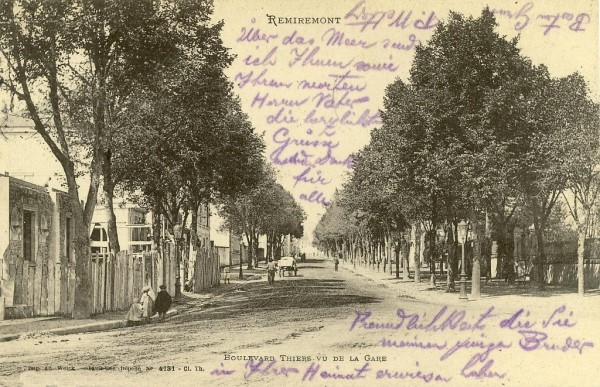 REMIREMONT
Über das Meer sende
ich Ihnen sowie
Ihrem werten
Herrn Vater
die herzlichsten
Grüsse
und Dank
für
alle
Freundlichkeit, die Sie
meinem jungen Bruder
in Ihrer Heimat erwiesen haben.
BOULEVARD THIERS VU DE LA GARE
Imp. Ad. Weick Nº 4131 - Cl. Th.